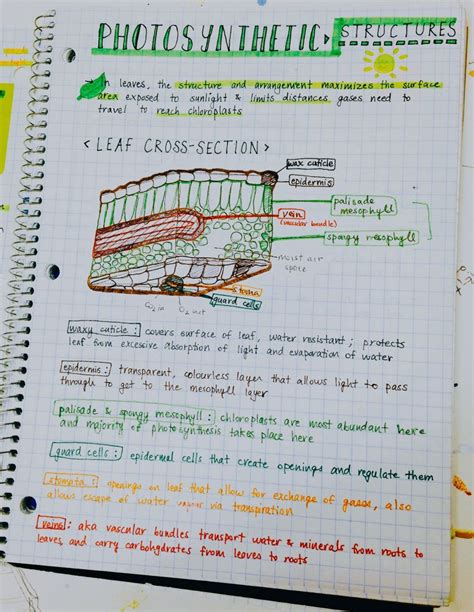 PHOTOSYNTHETIC STRUCTURES
In leaves, the structure and arrangement maximizes the surface
area exposed to sunlight & limits distances gases need to
travel to reach chloroplasts
< LEAF CROSS-SECTION >
wax cuticle
epidermis
palisade
mesophyll
vein
(vascular bundle)
spongy mesophyll
moist air
space
stoma
guard cells
in
out
waxy cuticle : covers surface of leaf, water resistant ; protects
leaf from excessive absorption of light and evaporation of water
epidermis : transparent, colourless layer that allows light to pass
through to get to the mesophyll layer
palisade & spongy mesophyll : chloroplasts are most abundant here
and majority of photosynthesis takes place here
guard cells : epidermal cells that create openings and regulate them
stomata : openings on leaf that allow for exchange of gases, also
allows escape of water via transpiration
veins : aka vascular bundles transport water & minerals from roots to
leaves and carry carbohydrates from leaves to roots